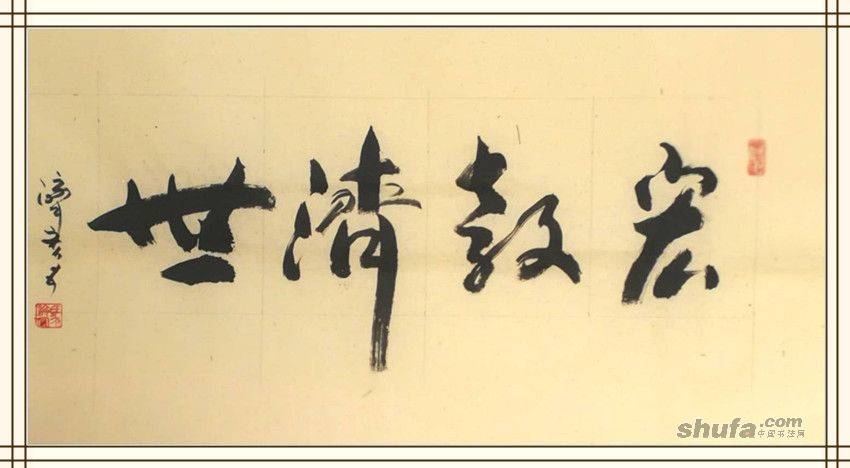 宏教濟世
shufa.com
中国书法网